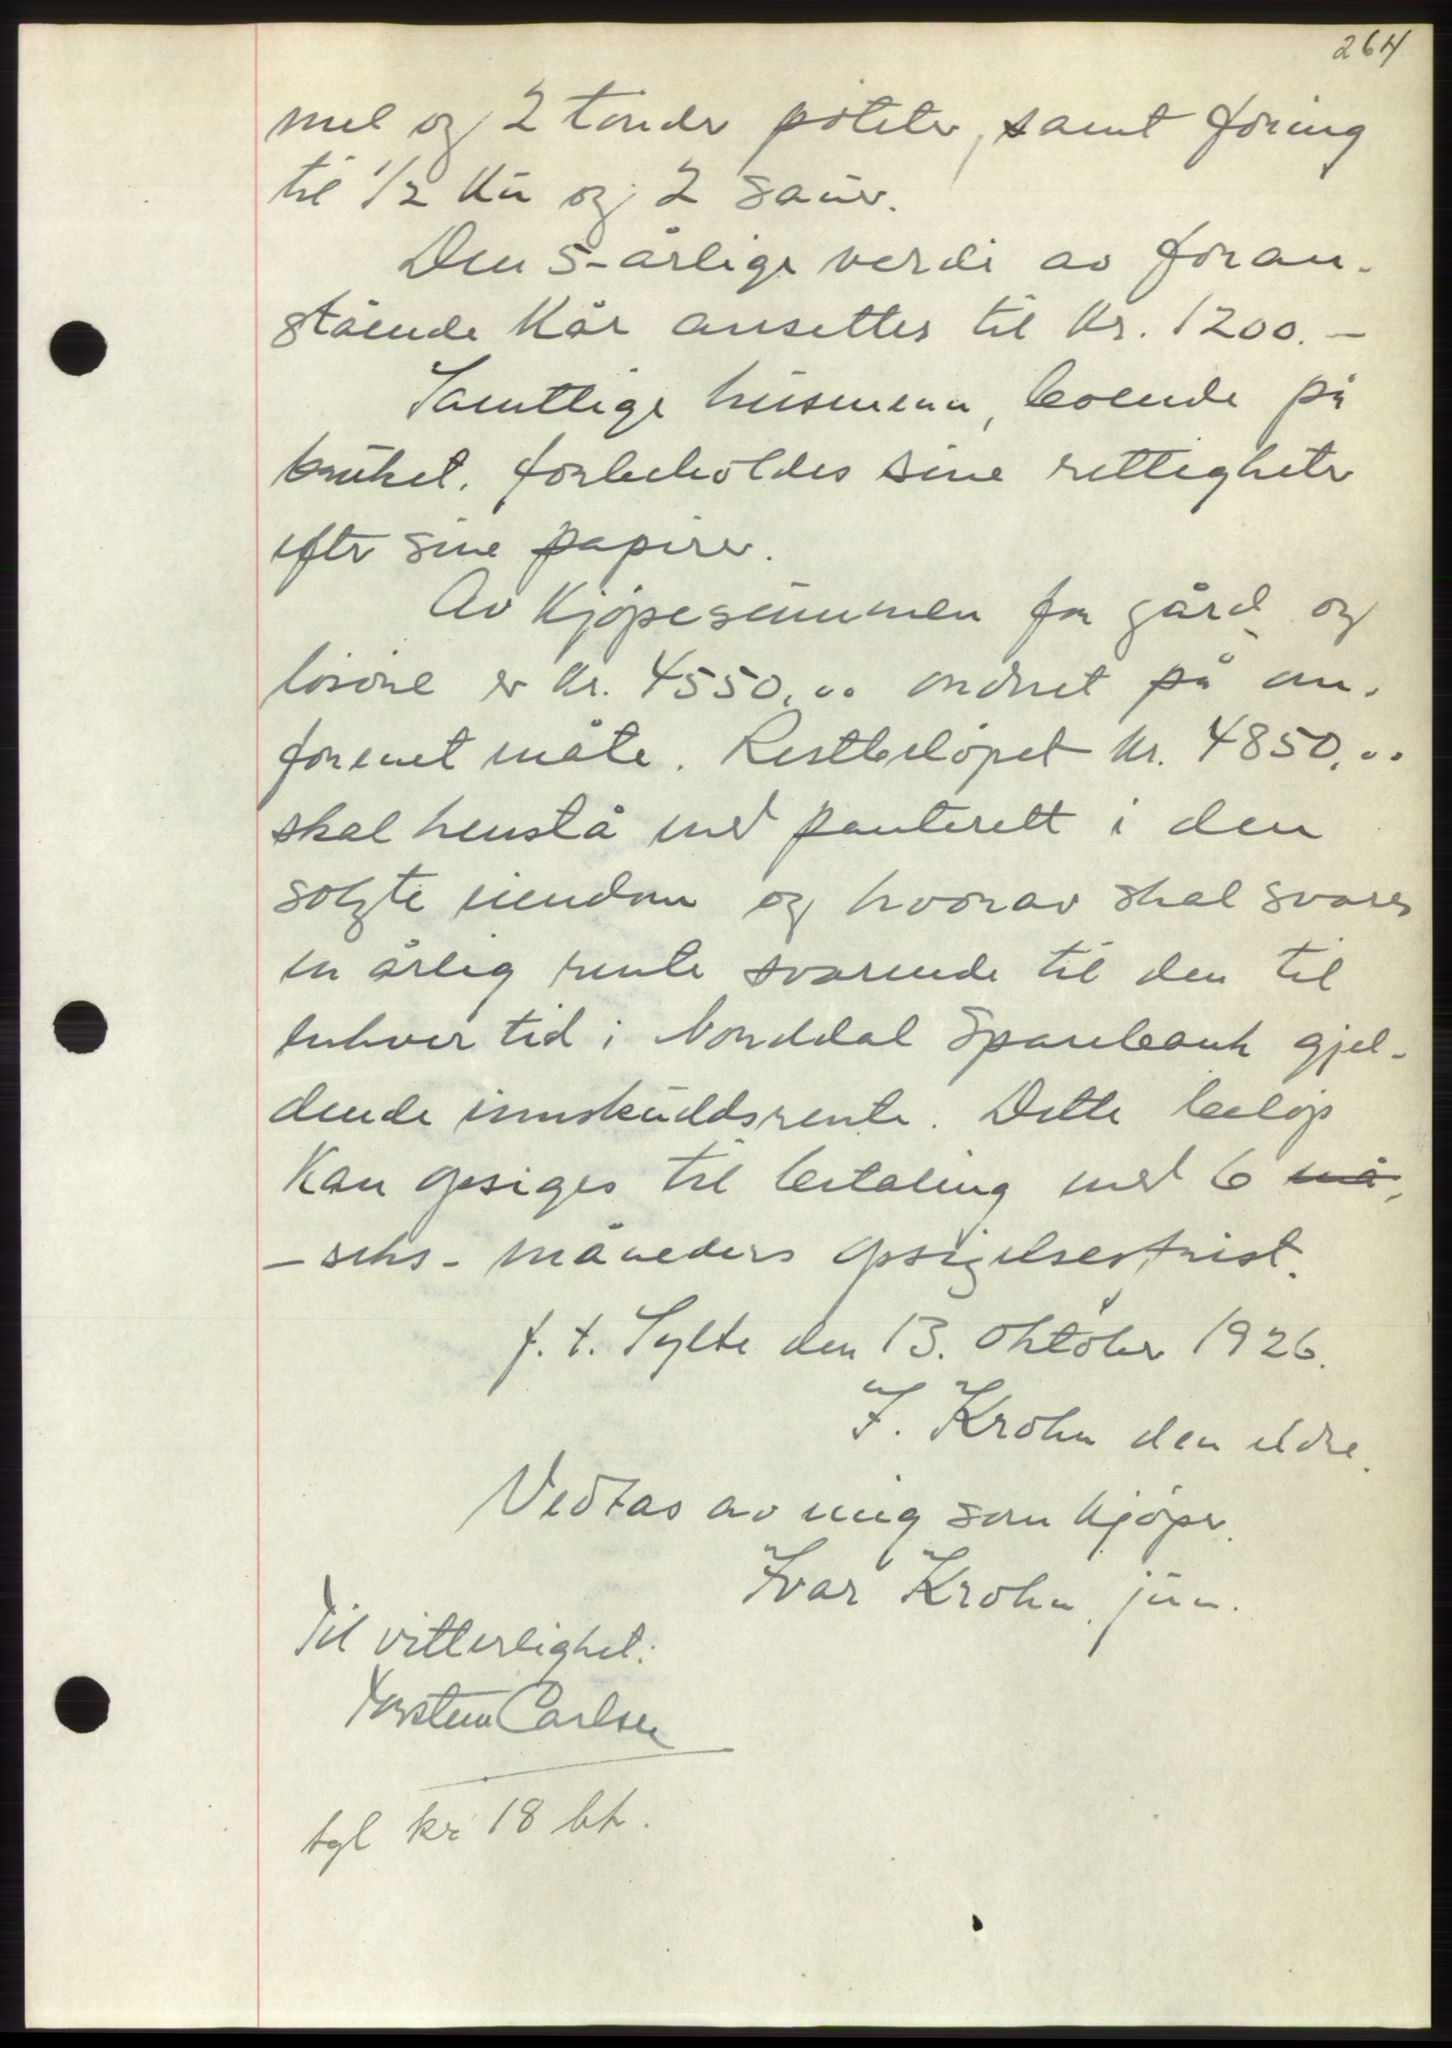 264
mel og 2 tönder poteter, samt foring
til 1/2 ku og 2 sauer.
Den 5-årlige verdi av foran-
stående kår ansettes til kr. 1200.-
Samtlige husmenn, boende på
bruket, forbeholdes sine rettigheter
efter sine papirer.
Av kjöpesummen for gård og
lösöre er kr. 4550,00 ordnet på an-
förenet måte. Restbelöpet kr. 4850,00
skal henstå med panterett i den
solgte eiendom og hvorav skal svares
en årlig rente svarende til den til
enhver tid i Norddal Sparebank gjel-
dende innskuddsrente. Dette belöp
kan opsiges til betaling med 6 må,
- seks - måneders opsigelsesfrist.
f. t. Sylte den 13. oktober 1926.
I. Krohn den eldre.
Vedtas av mig som kjöper.
Ivar Krohn jun.
Til vitterlighet:
Torstein Carlsen
tgl kr 18 bt.